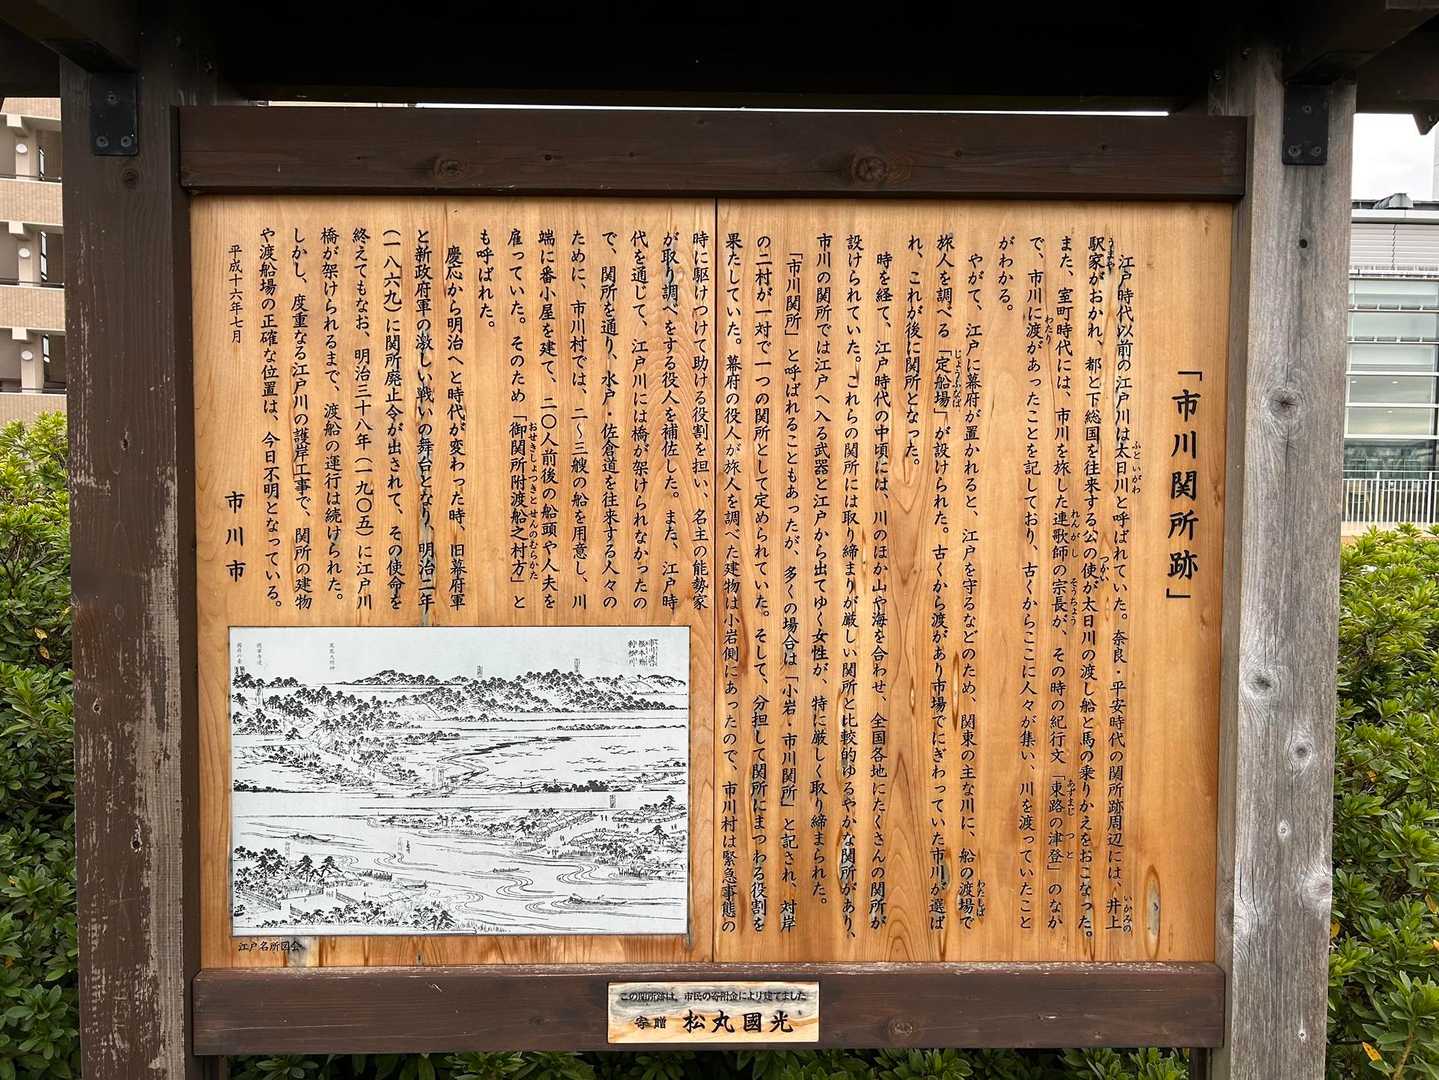 「市川関所跡」
江戸時代以前の江戸川は太日川と呼ばれていた。奈良・平安時代の関所跡周辺には、井上
ふといがわ
いかみの
駅家がおかれ、都と下総国を往来する公の使が太日川の渡し船と馬の乗りかえをおこなった。
うまや
つかい
また、室町時代には、市川を旅した連歌師の宗長が、その時の紀行文「東路の津登」のなか
れんがし
そうちょう
あずまじ
つと
で、市川に渡があったことを記しており、古くからここに人々が集い、川を渡っていたこと
わたり
がわかる。
やがて、江戸に幕府が置かれると、江戸を守るなどのため、関東の主な川に、船の渡場で
わたしば
旅人を調べる「定船場」が設けられた。古くから渡があり市場でにぎわっていた市川が選ば
じょうふなば
れ、これが後に関所となった。
時を経て、江戸時代の中頃には、川のほか山や海を合わせ、全国各地にたくさんの関所が
設けられていた。これらの関所には取り締まりが厳しい関所と比較的ゆるやかな関所があり、
市川の関所では江戸へ入る武器と江戸から出てゆく女性が、特に厳しく取り締まられた。
「市川関所」と呼ばれることもあったが、多くの場合は「小岩・市川関所」と記され、対岸
の二村が一対で一つの関所として定められていた。そして、分担して関所にまつわる役割を
果たしていた。幕府の役人が旅人を調べた建物は小岩側にあったので、市川村は緊急事態の
時に駆けつけて助ける役割を担い、名主の能勢家
が取り調べをする役人を補佐した。また、江戸時
代を通じて、江戸川には橋が架けられなかったの
で、関所を通り、水戸・佐倉道を往来する人々の
ために、市川村では、二〜三艘の船を用意し、川
端に番小屋を建て、二〇人前後の船頭や人夫を
雇っていた。そのため「御関所附渡船之村方」と
おせきしょつきとせんのむらかた
も呼ばれた。
慶応から明治へと時代が変わった時、旧幕府軍
と新政府軍の激しい戦いの舞台となり、明治二年
（一八六九）に関所廃止令が出されて、その使命を
終えてもなお、明治三十八年（一九〇五）に江戸川
橋が架けられるまで、渡船の運行は続けられた。
しかし、度重なる江戸川の護岸工事で、関所の建物
や渡船場の正確な位置は、今日不明となっている。
平成十六年七月
市川市
江戸名所図会
この関所跡は、市民の寄附金により建てました
寄贈 松丸國光